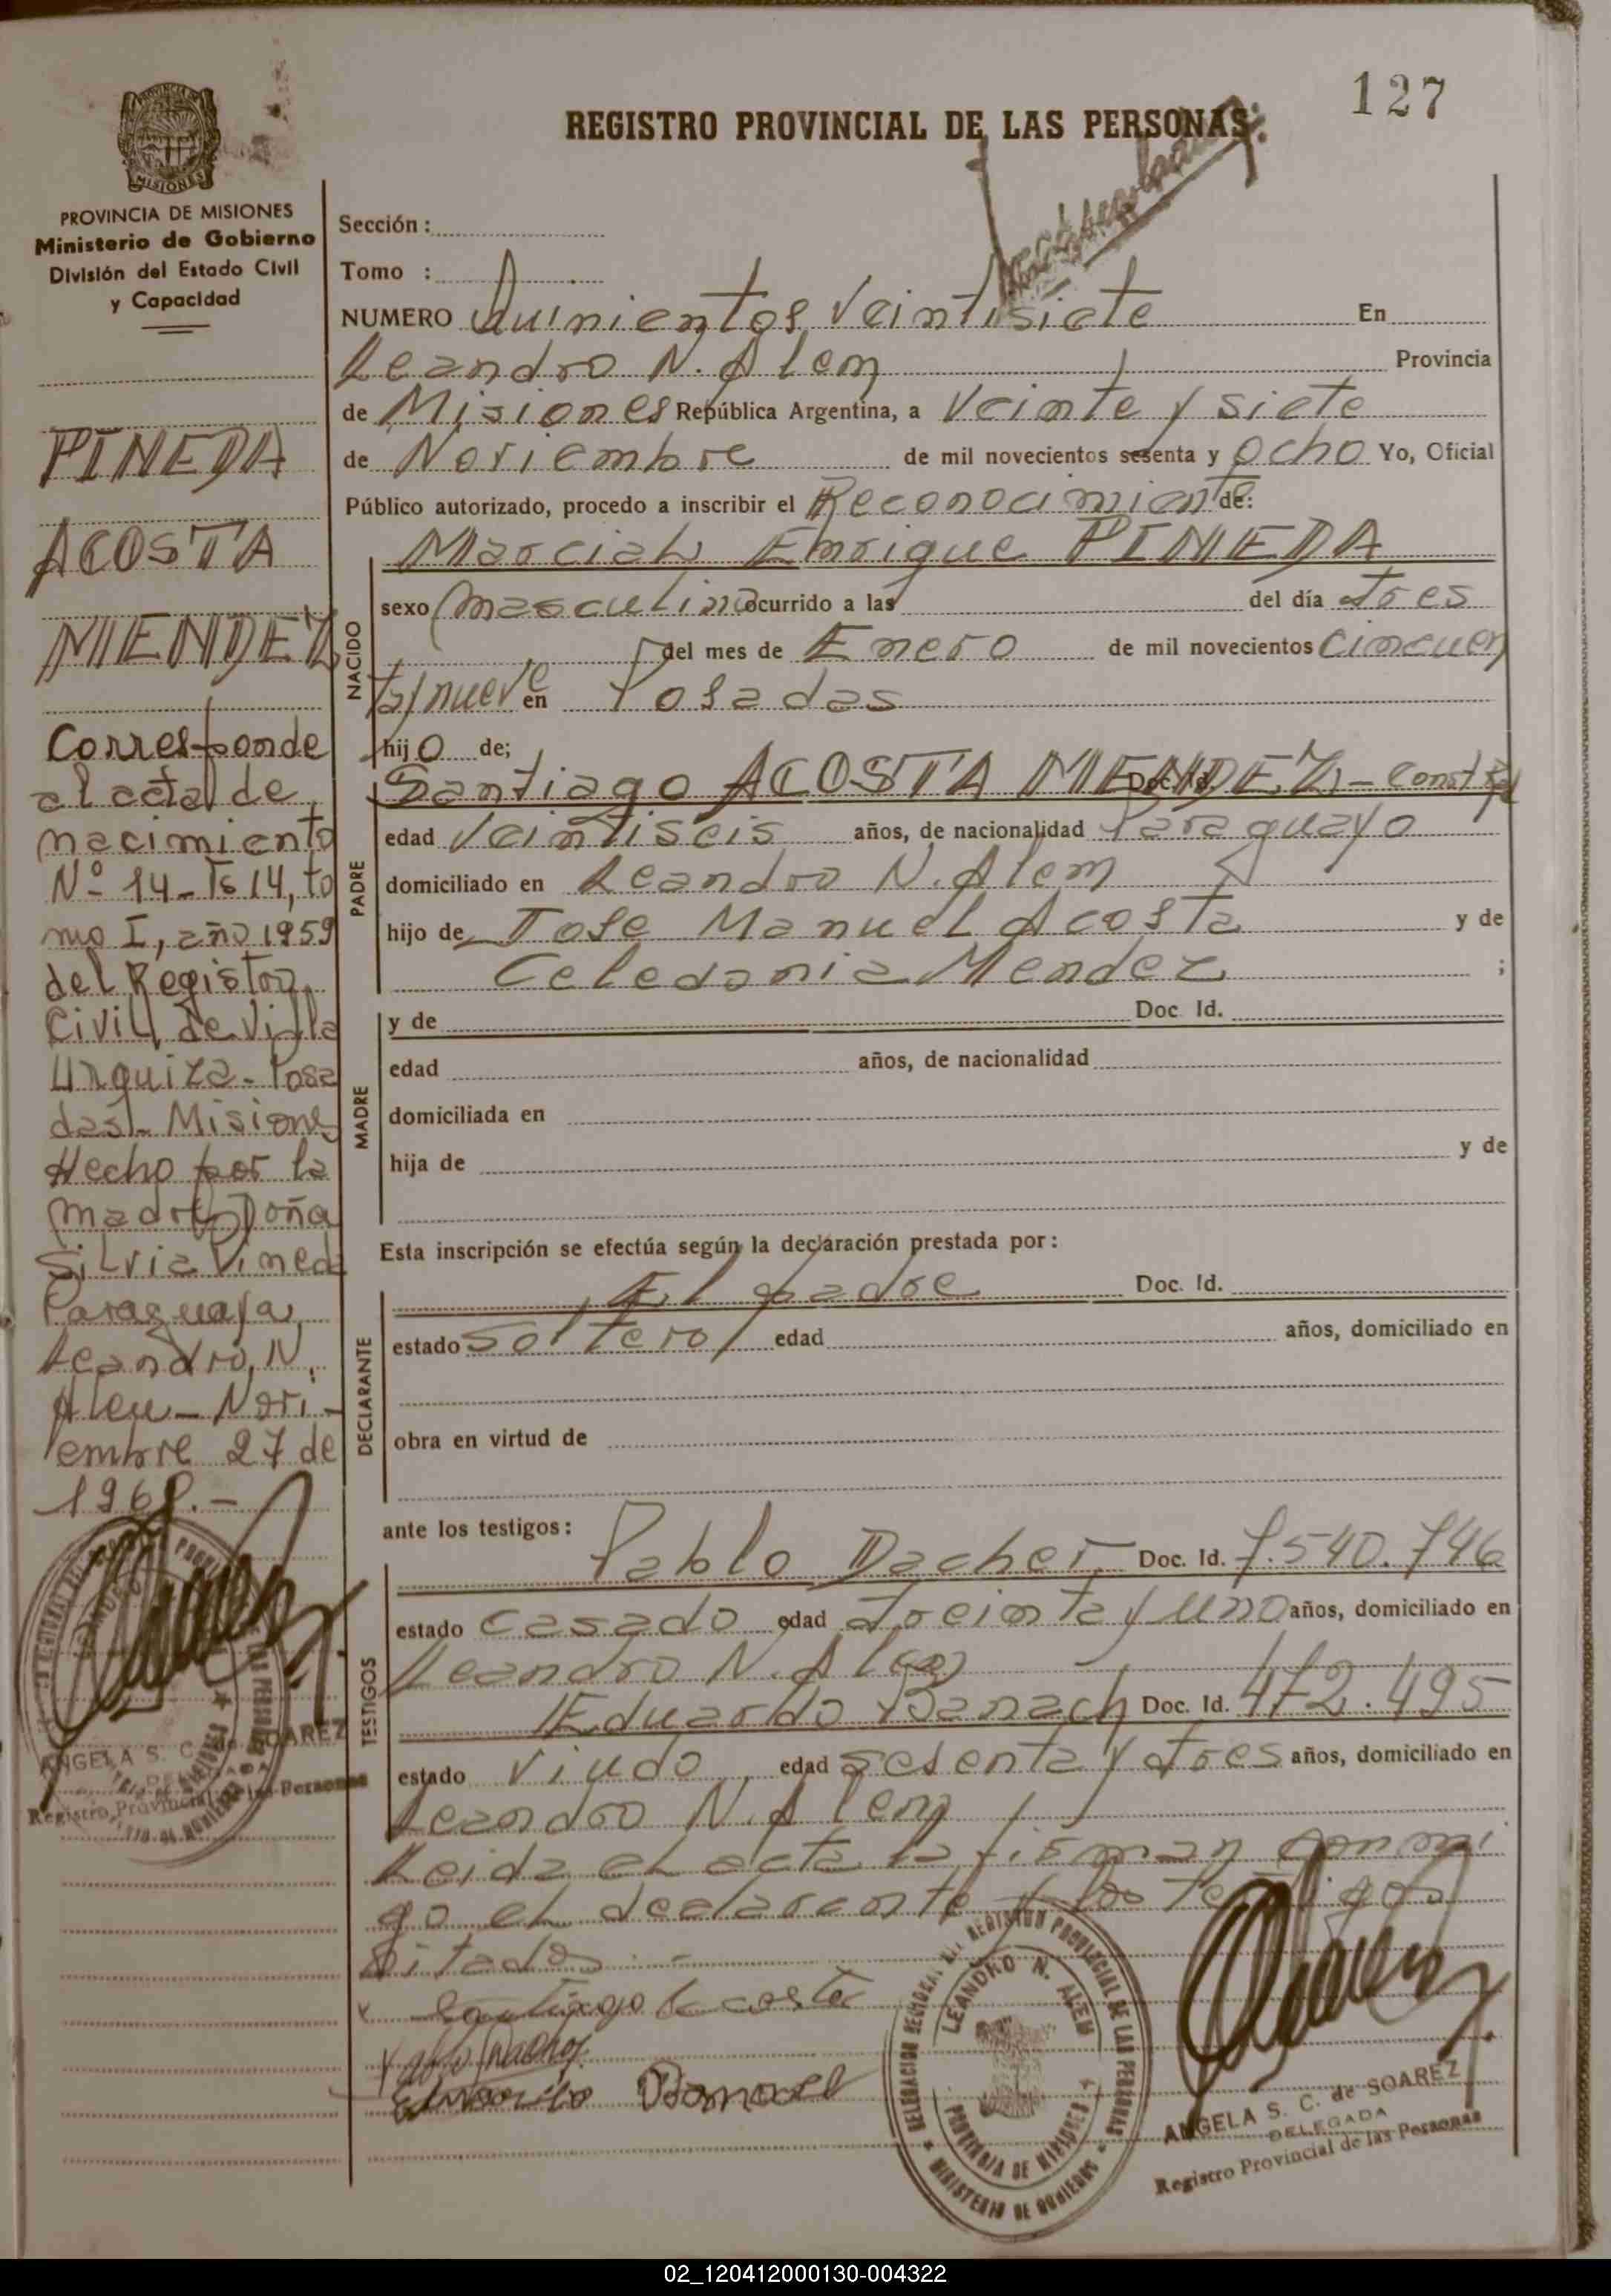 127
REGISTRO PROVINCIAL DE LAS PERSONAS
MISIONES
PROVINCIA DE MISIONES
Ministerio de Gobierno
División del Estado Civil
y Capacidad
PINEDA
ACOSTA
MENDEZ
Corresponde
al acta de
nacimiento
Nº 14-Fº 14, to
mo I, año 1959
del Registro
Civil de Villa
Urquiza-Posa
das-Misiones
Hecho por la
madre Doña
Silvia Pineda
Paraguaya
Leandro, N.
Alem-Novi-
embre 27 de
1968.-
ANGELA S. C. de SOAREZ
DELEGADA
Registro Provincial de las Personas
Sección:
Tomo :
NUMERO Quinientos Veintisiete En
Leandro N. Alem Provincia
de Misiones República Argentina, a Veinte y siete
de Noviembre de mil novecientos sesenta y ocho Yo, Oficial
Público autorizado, procedo a inscribir el Reconocimiento de:
Marcial Enrique PINEDA
NACIDO
sexo Masculino ocurrido a las del día tres
del mes de Enero de mil novecientos cincuen
ta y nueve en Posadas
hijo de;
Santiago ACOSTA MENDEZ- Doc. Id.
PADRE
edad Veintiseis años, de nacionalidad Paraguayo
domiciliado en Leandro N. Alem
hijo de Jose Manuel Acosta y de
Celedonia Mendez ;
MADRE
y de Doc. Id.
edad años, de nacionalidad
domiciliada en
hija de y de
Esta inscripción se efectúa según la declaración prestada por:
DECLARANTE
El padre Doc. Id.
estado Soltero edad años, domiciliado en
obra en virtud de
ante los testigos:
TESTIGOS
Pablo Dacher Doc. Id. 7.540.746
estado casado edad treinta y uno años, domiciliado en
Leandro N. Alem
Eduardo Banach Doc. Id. 472.495
estado viudo edad sesenta y tres años, domiciliado en
Leandro N. Alem
Leida el acta la firman conmi
go el declarante y los testigos
citados.-
x Santiago Acosta
Pablo Dacher
Eduardo Banach
LEANDRO N. ALEM
PROVINCIA DE MISIONES
MINISTERIO DE GOBIERNO
ANGELA S. C. de SOAREZ
DELEGADA
Registro Provincial de las Personas
02_120412000130-004322